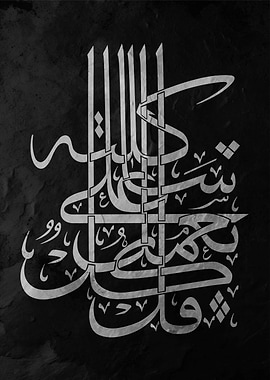 قل
كل
يعمل
على
شاكلته